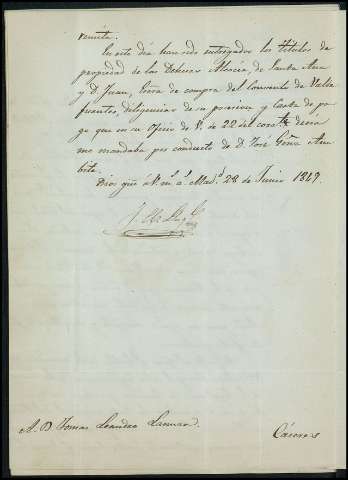 remite.
En este dia han sido entregados los titulos de
propiedad de las Dehesas de Santa Ana
y D. Juan, de compra del Convento de Valde
fuentes, diligencias de su posesion y Carta de pa
go que en su Oficio de V. de 22 del corrte decia
me mandaba por conducto de D. José Gª Am
brite.
Dios gue á V. m.s a.s Mad.d 28 de Junio 1849.
A. D. Tomas Leandro
Cáceres